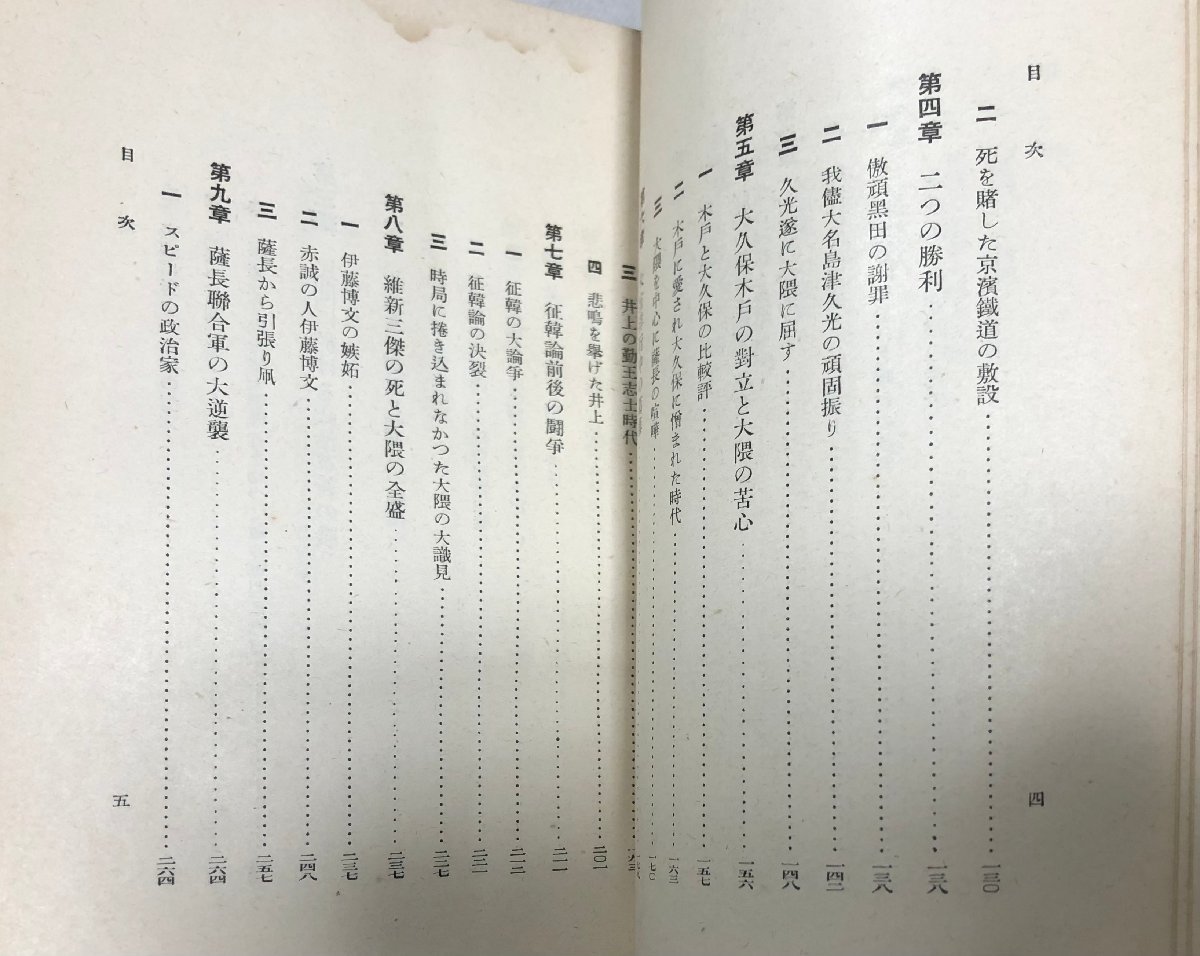 目次
二 死を賭した京濱鐵道の敷設…一三〇
第四章 二つの勝利…一三八
一 傲頑黑田の謝罪…一三八
二 我儘大名島津久光の頑固振り…一四二
三 久光遂に大隈に屈す…一四八
第五章 大久保木戸の對立と大隈の苦心…一五六
一 木戸と大久保の比較評…一五七
二 木戸に愛され大久保に憎まれた時代…一六三
三 大隈を中心に薩長の喧嘩…一七〇
四
三 井上の勤王志士時代
四 悲鳴を擧げた井上…二〇一
第七章 征韓論前後の闘爭…二一一
一 征韓の大論爭…二一二
二 征韓論の決裂…二二一
三 時局に捲き込まれなかつた大隈の大識見…二二七
第八章 維新三傑の死と大隈の全盛…二三七
一 伊藤博文の嫉妬…二三七
二 赤誠の人伊藤博文…二四八
三 薩長から引張り凧…二五七
第九章 薩長聯合軍の大逆襲…二六四
一 スピードの政治家…二六四
目次
五